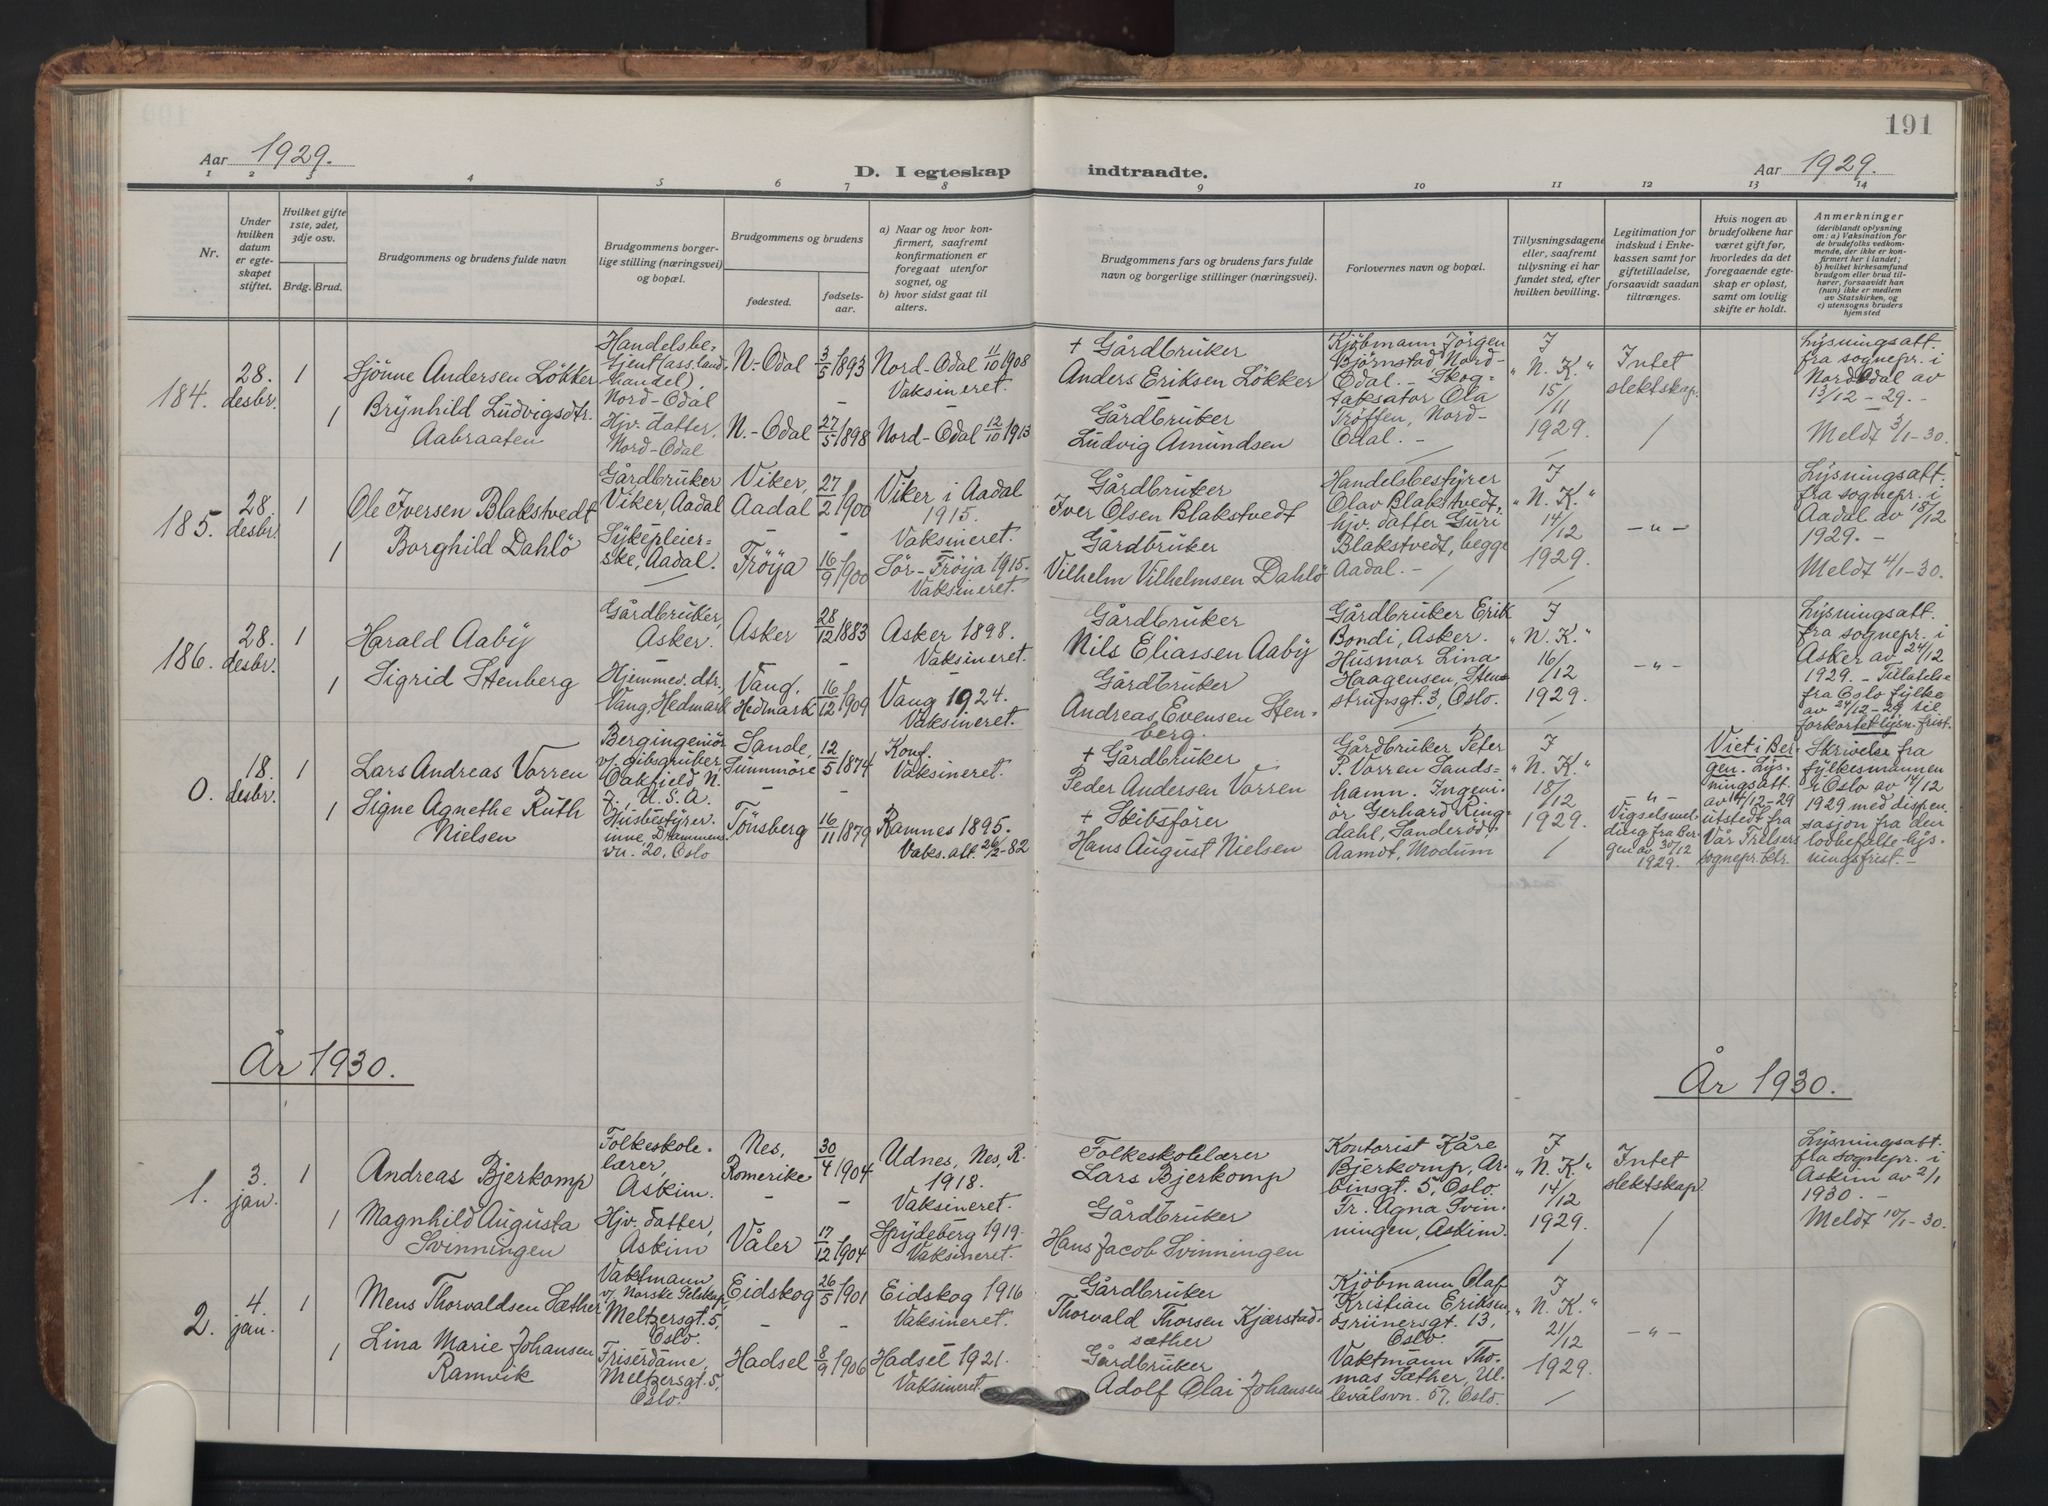 191
Aar 1929.
D. I egteskap indtraadte.
Aar 1929.
1 2 3 4 5 6 7 8 9 10 11 12 13 14
Nr.
Under hvilken datum er egteskapet stiftet.
Hvilket gifte 1ste, 2det, 3dje osv.
Brdg. Brud.
Brudgommens og brudens fulde navn
Brudgommens borgerlige stilling (næringsvei) og bopæl.
Brudgommens og brudens
fødested.
fødselsaar.
a) Naar og hvor konfirmert, saafremt konfirmationen er foregaat utenfor sognet, og
b) hvor sidst gaat til alters.
Brudgommens fars og brudens fars fulde navn og borgerlige stillinger (næringsvei).
Forlovernes navn og bopæl.
Tillysningsdagene eller, saafremt tillysning ei har fundet sted, efter hvilken bevilling.
Legitimation for indskud i Enkekassen samt for giftetilladelse, forsaavidt saadan tiltrænges.
Hvis nogen av brudefolkene har været gift før, hvorledes da det foregaaende egteskap er opløst, samt om lovlig skifte er holdt.
Anmerkninger (deriblandt oplysning om: a) Vaksination for de brudefolks vedkommende, der ikke er konfirmert her i landet; b) hvilket kirkesamfund brudgom eller brud tilhører, forsaavidt han (hun) ikke er medlem av Statskirken, og c) utensogns bruders hjemsted
184.
28. desbr.
1
Sjönne Andersen Lökker
Handelsbetjent (ass. landhandel), Nord-Odal
N.-Odal
3/5 1893
Nord-Odal 11/10 1908
Vaksineret.
+ Gårdbruker
Anders Eriksen Lökker
Kjöbmann Jörgen Björnstad Nord-Odal. - Skogtaksator Ola Tröften, Nord-Odal. -
I "N. K." 15/11 1929.
Intet slektskap.
Lysningsatt. fra sognepr. i Nord-Odal av 13/12-29. -
Meldt 3/1-30.
1
Brynhild Ludvigsdtr. Aabraaten
Hjv. datter, Nord-Odal
N.-Odal
27/5 1898
Nord-Odal 12/10 1913
Gårdbruker
Ludvig Amundsen
185.
28 desbr.
1
Ole Iversen Blakstvedt
Gårdbruker Viker, Aadal
Viker, Aadal
27/2 1900
Viker i Aadal 1915.
Vaksineret.
Gårdbruker
Iver Olsen Blakstvedt
Handelsbestyrer Olav Blakstvedt, hjv. datter Guri Blakstvedt, begge Aadal. -
I "N. K." 14/12 1929.
- " -
Lysningsatt. fra sognepr. i Aadal av 18/12 1929. -
Meldt 4/1-30.
1
Borghild Dahlö
Sykepleierske, Aadal.
Fröya
16/9 1900
Sör-Fröya 1915.
Vaksineret.
Gårdbruker
Vilhelm Vilhelmsen Dahlö
186.
28. desbr.
1
Harald Aaby
Gårdbruker, Asker.
Asker
28/12 1883
Asker 1898.
Vaksineret.
Gårdbruker
Nils Eliassen Aaby
Gårdbruker Erik Bondi, Asker.
Husmor Lina Haagensen, Stenstrupsgt. 3, Oslo.
I "N. K." 16/12 1929.
- " -
Lysningsatt. fra sognepr. i Asker av 24/12 1929. - Tillatelse fra Oslo fylke av 24/12-29 til forkortet lysn. frist.
1
Sigrid Stenberg
Hjemmev. dtr., Vang, Hedmark
Vang, Hedmark
16/12 1909
Vang 1924.
Vaksineret.
Gårdbruker
Andreas Evensen Stenberg.
0.
18. desbr.
1
Lars Andreas Vorren
Bergingeniör v/ gibsgruber, Oakfield N. Y., U.S.A.
Sande, Sunnmöre
12/5 1874
Konf.
Vaksineret.
+ Gårdbruker
Peder Andersen Vorren
Gårdbruker Peter P. Vorren Sandshamn. Ingeniör Gerhard Ringdahl, Aamot, Modum
I "N. K." 18/12 1929.
- " -
Vigselsmelding fra Bergen av 30/12 1929.
Viet i Bergen. Lysningsatt. av 14/12-29 utstedt fra Vår Frelsers sognepr. ktr.
Skrivelse fra fylkesmannen i Oslo av 14/12 1929 med dispensasjon fra den lovbefalte lysningsfrist. -
1
Signe Agnethe Ruth Nielsen
Husbestyrerinne, Drammensvn. 20, Oslo
Tönsberg
16/11 1879
Ramnes 1895.
Vaks. att. 26/2-82
+ Skibsförer
Hans August Nielsen
År 1930.
År 1930.
1.
3. jan.
1
Andreas Bjerkomp
Folkeskolelærer, Askim.
Nes, Romerike
30/4 1904
Udnes, Nes, R. 1918.
Vaksineret.
Folkeskolelærer
Lars Bjerkomp
Kontorist Kåre Bjerkomp, Arbinsgt. 5, Oslo.
Fr. Agna Svinningen, Askim.
I "N. K." 14/12 1929.
Intet slektskap.
Lysningsatt. fra sognepr. i Askim av 2/1 1930. -
Meldt 10/1-30.
1
Magnhild Augusta Svinningen
Hjv. datter, Askim
Våler
17/12 1904
Spydeberg 1919.
Vaksineret.
Gårdbruker
Hans Jacob Svinningen
2.
4. jan.
1
Mens Thorvaldsen Sæther
Vaktmann v/ Norske Selskap, Meltzersgt. 5, Oslo.
Eidskog
26/5 1901
Eidskog 1916
Vaksineret.
Gårdbruker
Thorvald Thorsen Kjærstadsæther
Kjöbmann Olaf Kristian Eriksen, Grünersgt. 13, Oslo.
Vaktmann Thomas Sæther, Ullevålsvn. 57, Oslo.
I "N. K." 21/12 1929.
- " -
1
Lina Marie Johansen Ramvik
Frisérdame, Meltzersgt. 5, Oslo.
Hadsel
8/9 1906
Hadsel 1921.
Vaksineret.
Gårdbruker
Adolf Olai Johansen